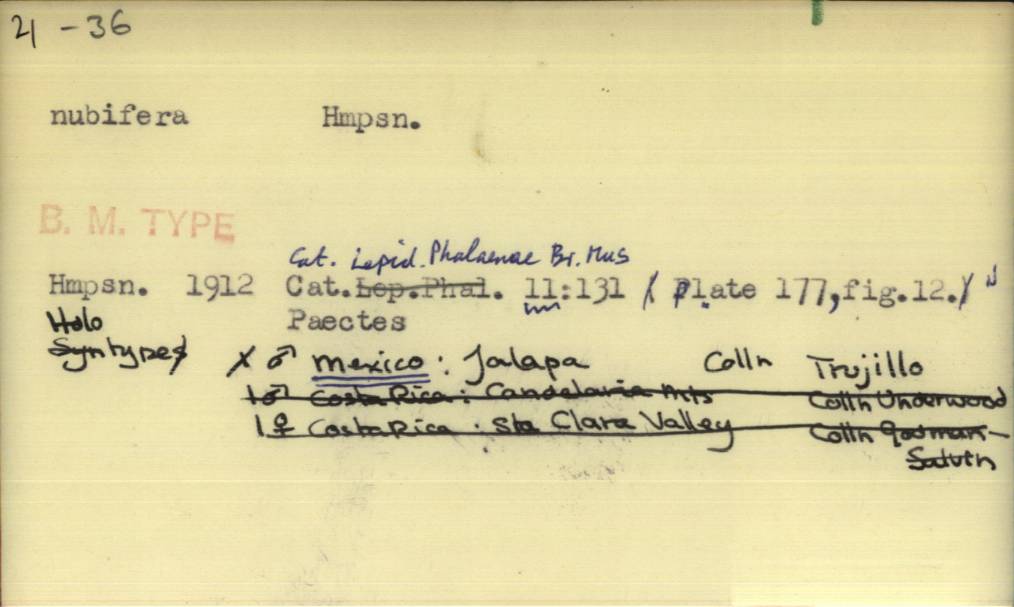 21 - 36
nubifera Hmpsn.
B. M. TYPE
Cat. Lepid. Phalaenae Br. Mus
Hmpsn. 1912 Cat.Lep.Phal. 11:131 ( Plate 177,fig.12.)
Holo Paectes
Syntypes ♂ Mexico : Jalapa Colln Trujillo
1♂ Costa Rica : Candelaria Mts Colln Underwood
1♀ Costa Rica : Sta Clara Valley Colln Godman-
Salvin